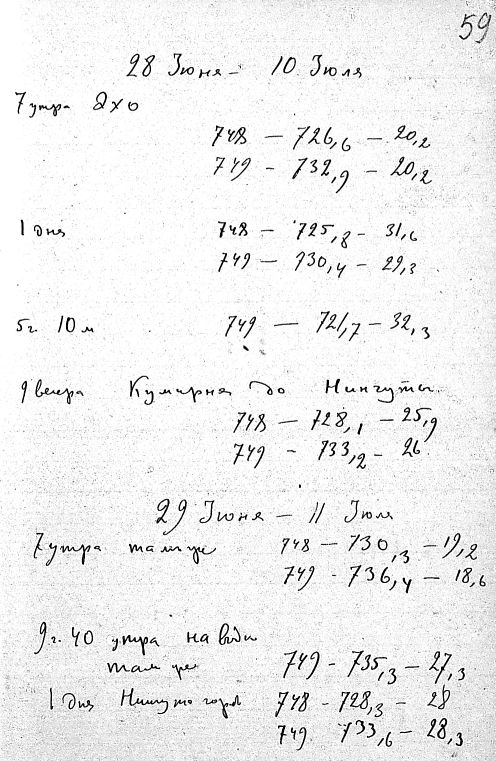 59
28 Июня - 10 Июля
7 утра Эхо
748 — 726,6 — 20,2
749 - 732,9 - 20,2
1 дня 748 — 725,8 - 31,6
749 — 730,4 - 29,3
5 г. 10 м 749 — 721,7 - 32,3
9 вечера Кумирня до Нингуты
748 — 728,1 - 25,9
749 - 733,2 - 26
29 Июня — 11 Июля
7 утра там же 748 — 730,3 - 19,2
749 - 736,4 - 18,6
9 г. 40 утра на
там же 749 - 735,3 - 27,3
1 дня 748 - 728,3 - 28
749 733,6 - 28,3